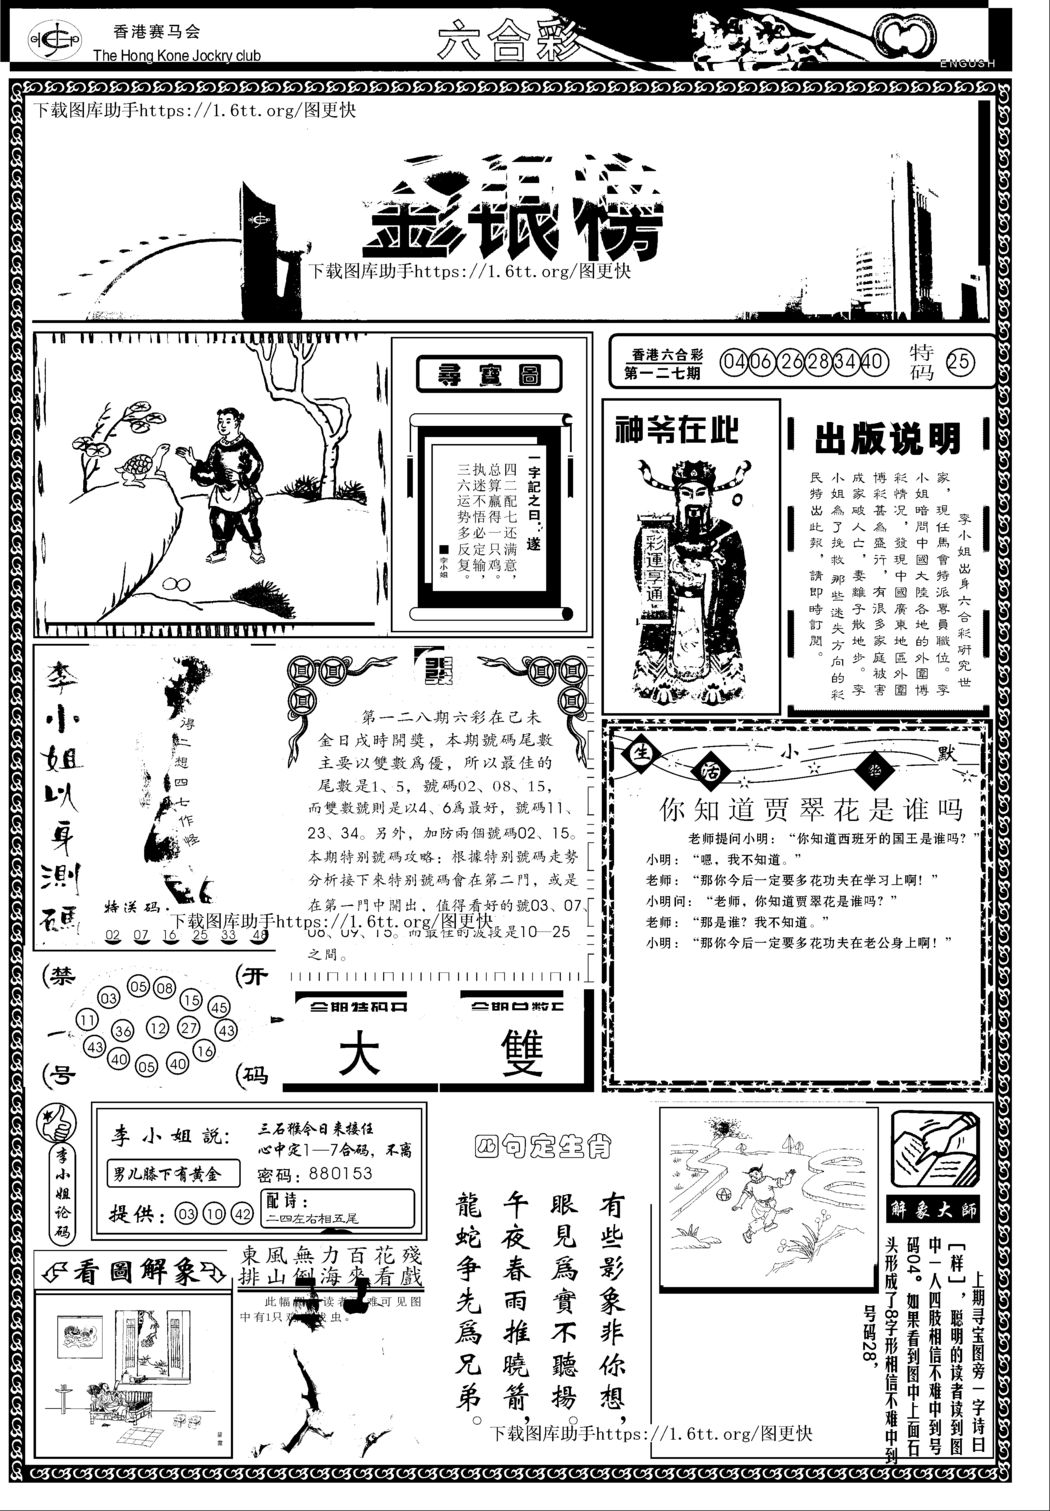 香港赛马会
The Hong Kone Jockry club
六合彩
ENGUSH
下载图库助手https://1.6tt.org/图更快
金银榜
下载图库助手https://1.6tt.org/图更快
尋寶圖
一字記之曰：遂
四二配七还满意，
总算赢得一只鸡。
执迷不悟必定输，
三六运势多反复。
■李小姐
香港六合彩
第一二七期
04 06 26 28 34 40
特码
25
神爷在此
彩運享通
出版说明
李小姐出身六合彩研究世
家，現任馬會特派專員職位。李
小姐暗問中國大陸各地的外圍博
彩情况，發現中國廣東地區外圍
博彩甚為盛行，有很多家庭被害
成家破人亡，妻離子散地步。李
小姐為了挽救那些迷失方向的彩
民特出此報，請即時訂閲。
李小姐以身測碼
得二想四七作怪
特送码：
02 07 16 25 33 48
第一二八期六彩在己未
金日戌時開獎，本期號碼尾數
主要以雙數爲優，所以最佳的
尾數是1、5，號碼02、08、15，
而雙數號則是以4、6爲最好，號碼11、
23、34。另外，加防兩個號碼02、15。
本期特别號碼攻略：根據特别號碼走勢
分析接下來特别號碼會在第二門，或是
在第一門中開出，值得看好的號03、07、
08、09、15。而最佳的波段是10—25
之間。
下载图库助手https://1.6tt.org/图更快
生活小幽默
你知道贾翠花是谁吗
老师提问小明：“你知道西班牙的国王是谁吗？”
小明：“嗯，我不知道。”
老师：“那你今后一定要多花功夫在学习上啊！”
小明问：“老师，你知道贾翠花是谁吗？”
老师：“那是谁？我不知道。”
小明：“那你今后一定要多花功夫在老公身上啊！”
禁一号
开码
03 05 08 15 45
11 36 12 27 43
43 40 05 40 16
大
雙
李小姐论码
李小姐説：
三石猴今日来接任
心中定1—7合码，不离
男儿膝下有黄金
密码：880153
提供：03 10 42
配诗：
二四左右相五尾
看圖解象
東風無力百花殘
排山倒海來看戲
四句定生肖
有些影象非你想，
眼見爲實不聽揚。
午夜春雨推曉箭，
龍蛇争先爲兄弟。
解象大師
上期寻宝图旁一字诗曰
【样】，聪明的读者读到图
中一人四肢相信不难中到号
码04。如果看到图中上面石
头形成了8字形相信不难中到
号码28，
下载图库助手https://1.6tt.org/图更快